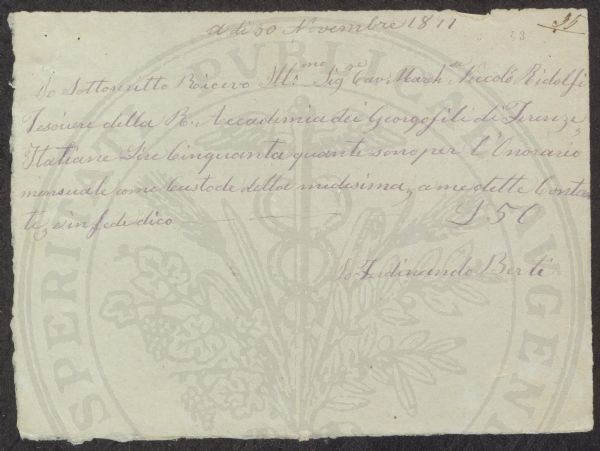 A dì 30 Novembre 1811
35
Io Sottoscritto Ricevo Ill:mo Sigre Cav: Marche Niccolò Ridolfi
Tesoriere della R. Accademia dei Georgofili di Firenze,
Italiane Lire Cinquanta quanti sono per l'Onorario
mensuale come Custode della medesima, a me dette Conta=
te, e in fede dico £ 50
Io Ferdinando Berti
PUBLICAE
PROSPERITATI
AUGENDAE